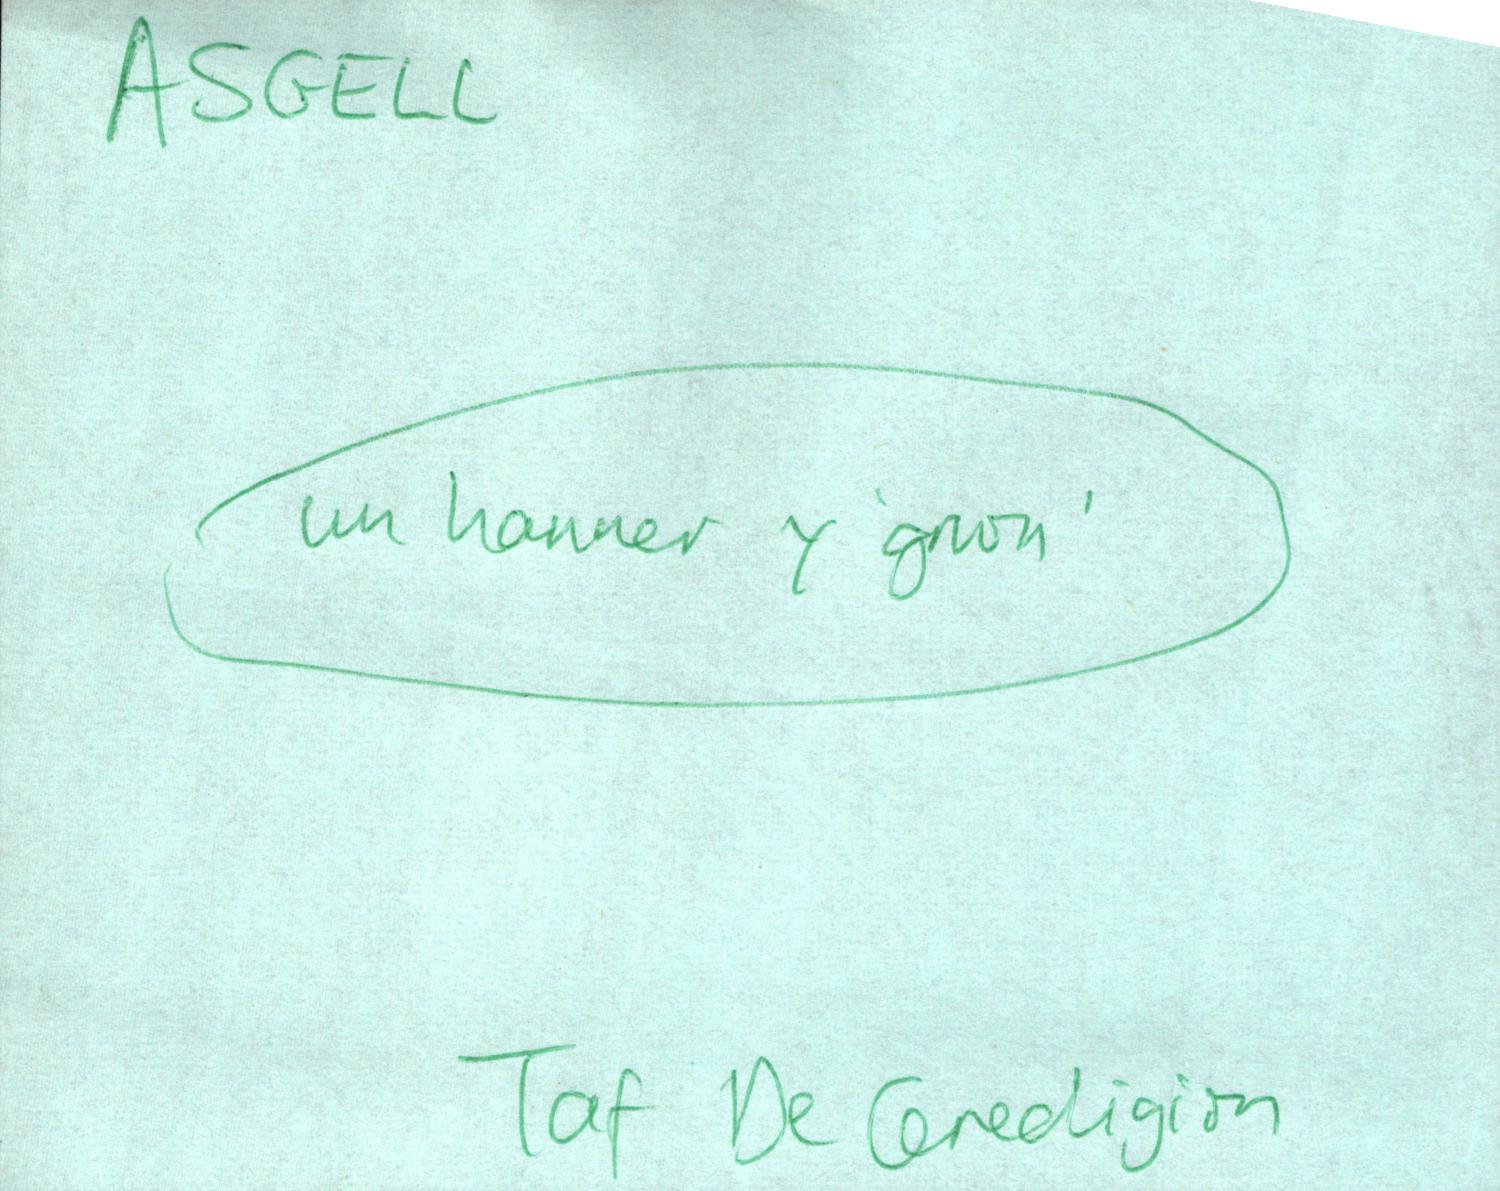 ASGELL
un hanner y 'grwn'
Taf De Ceredigion